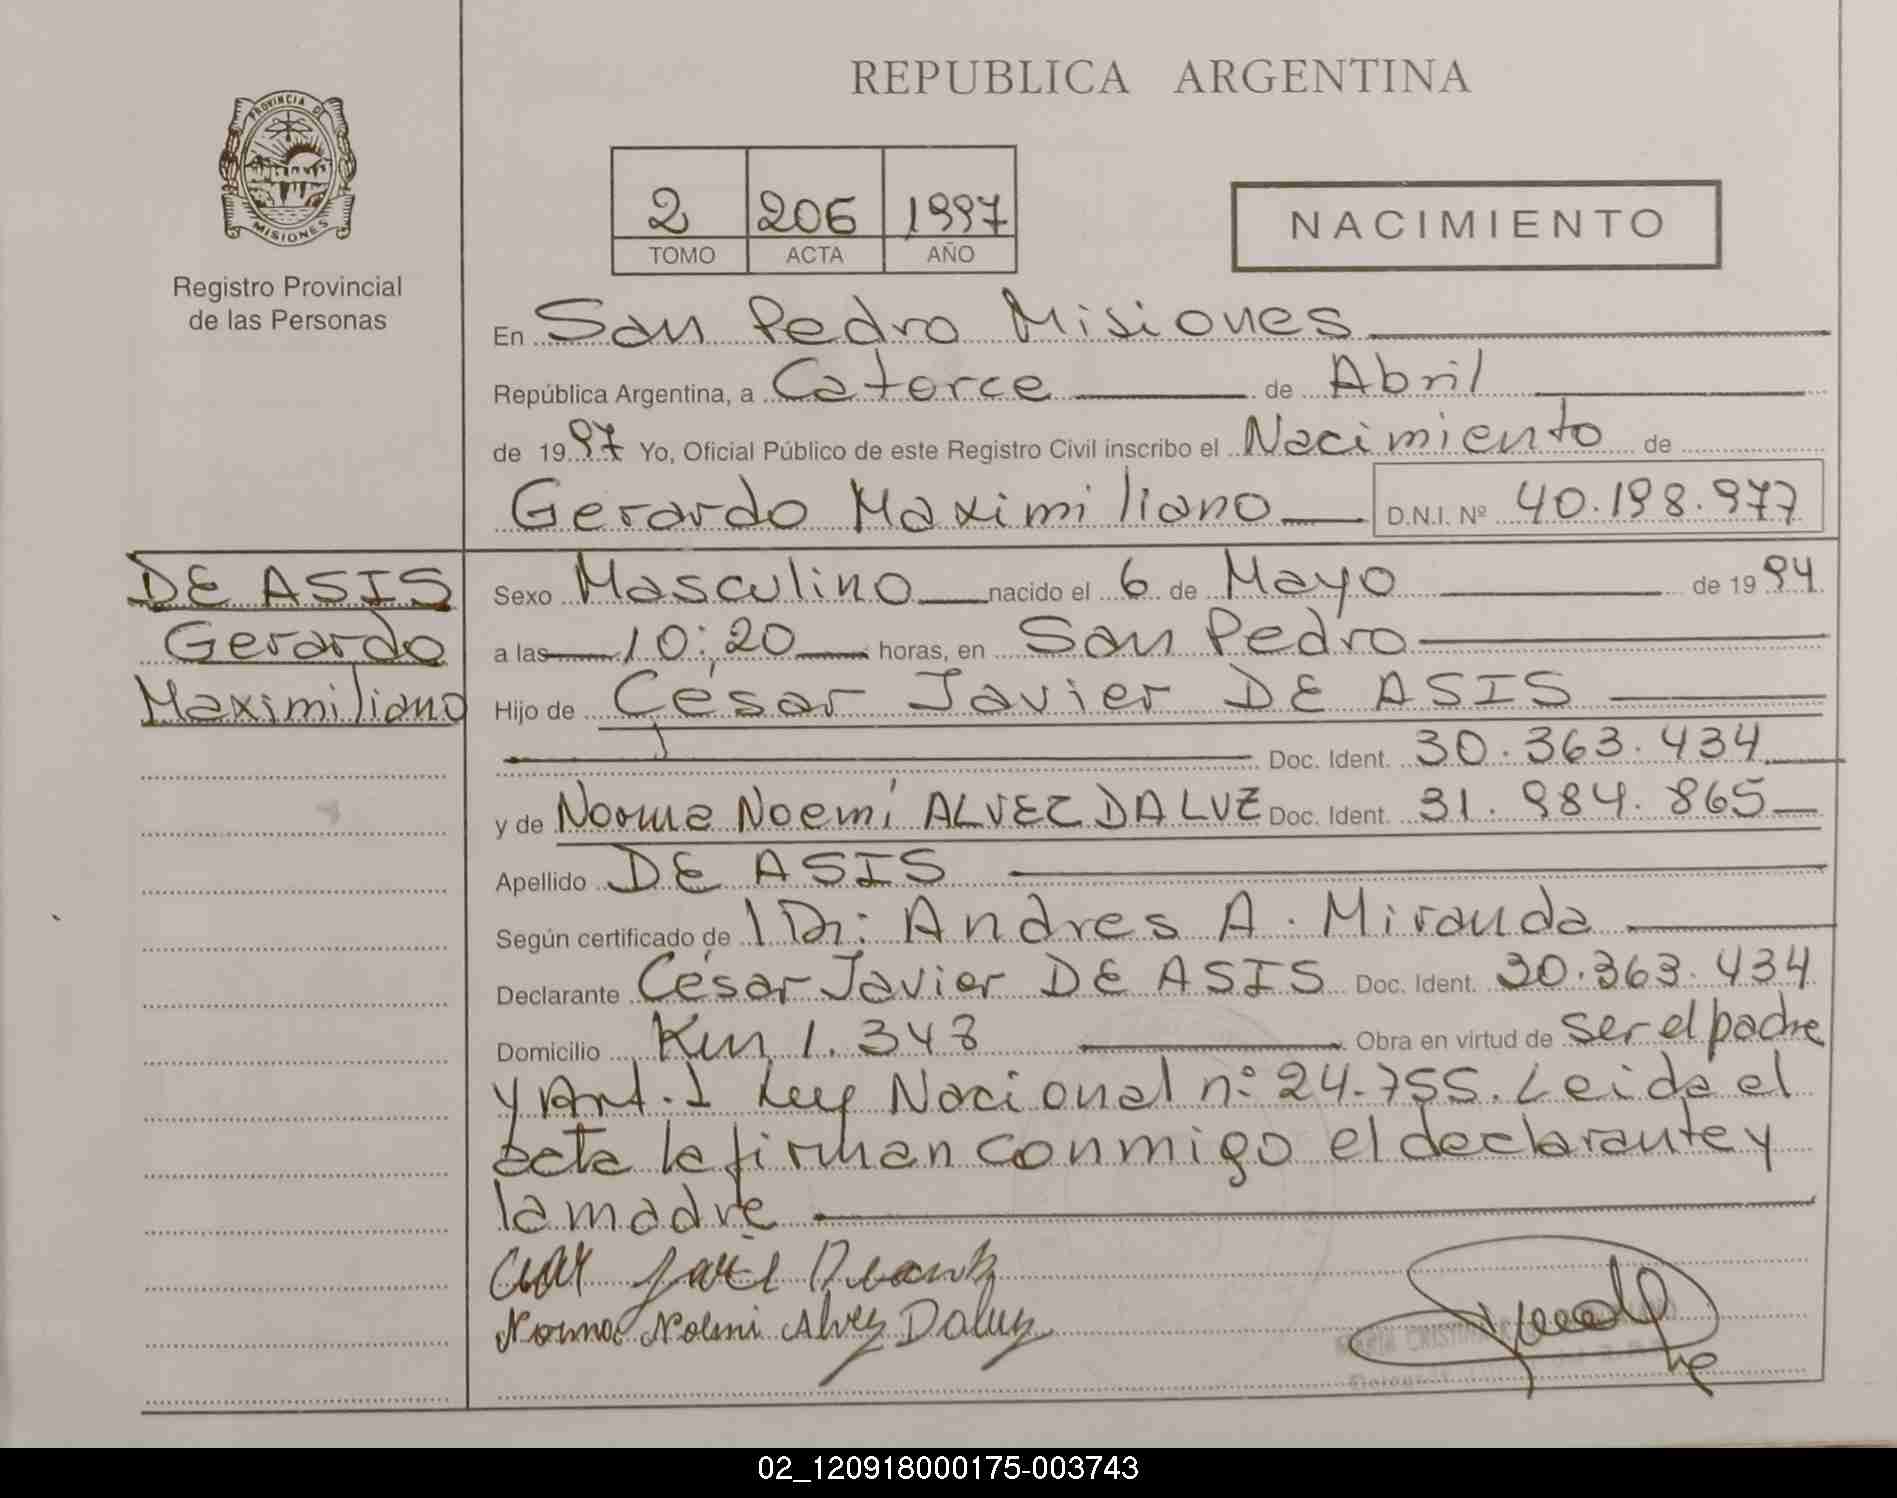 REPUBLICA ARGENTINA
PROVINCIA DE
MISIONES
Registro Provincial
de las Personas
2 206 1997
TOMO ACTA AÑO
NACIMIENTO
En San Pedro Misiones
República Argentina, a Catorce de Abril
de 1997 Yo, Oficial Público de este Registro Civil inscribo el Nacimiento de
Gerardo Maximiliano D.N.I. Nº 40.198.977
DE ASIS
Gerardo
Maximiliano
Sexo Masculino nacido el 6 de Mayo de 1994
a las 10:20 horas, en San Pedro
Hijo de César Javier DE ASIS
Doc. Ident. 30.363.434
y de Norma Noemí ALVEZ DA LUZ Doc. Ident. 31.984.865
Apellido DE ASIS
Según certificado de Dr: Andres A. Miranda
Declarante César Javier DE ASIS Doc. Ident. 30.363.434
Domicilio Km 1.343 Obra en virtud de ser el padre
y Art. 1 Ley Nacional nº 24.755. Leida el
acta la firman conmigo el declarante y
la madre
Norma Noemi Alvez Daluz
MARIA CRISTINA
02_120918000175-003743